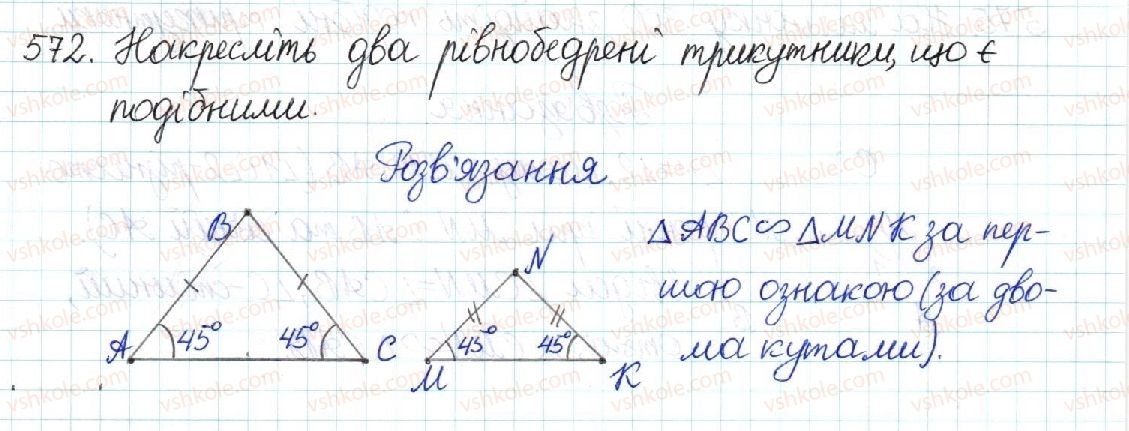 572. Накресліть два рівнобедрені трикутники, що є
подібними.
Розв'язання
B
N
A 45° 45° C
45 45°
M K
△ABC∽△MNK за пер-
шою ознакою (за дво-
ма кутами).
vshkole.com